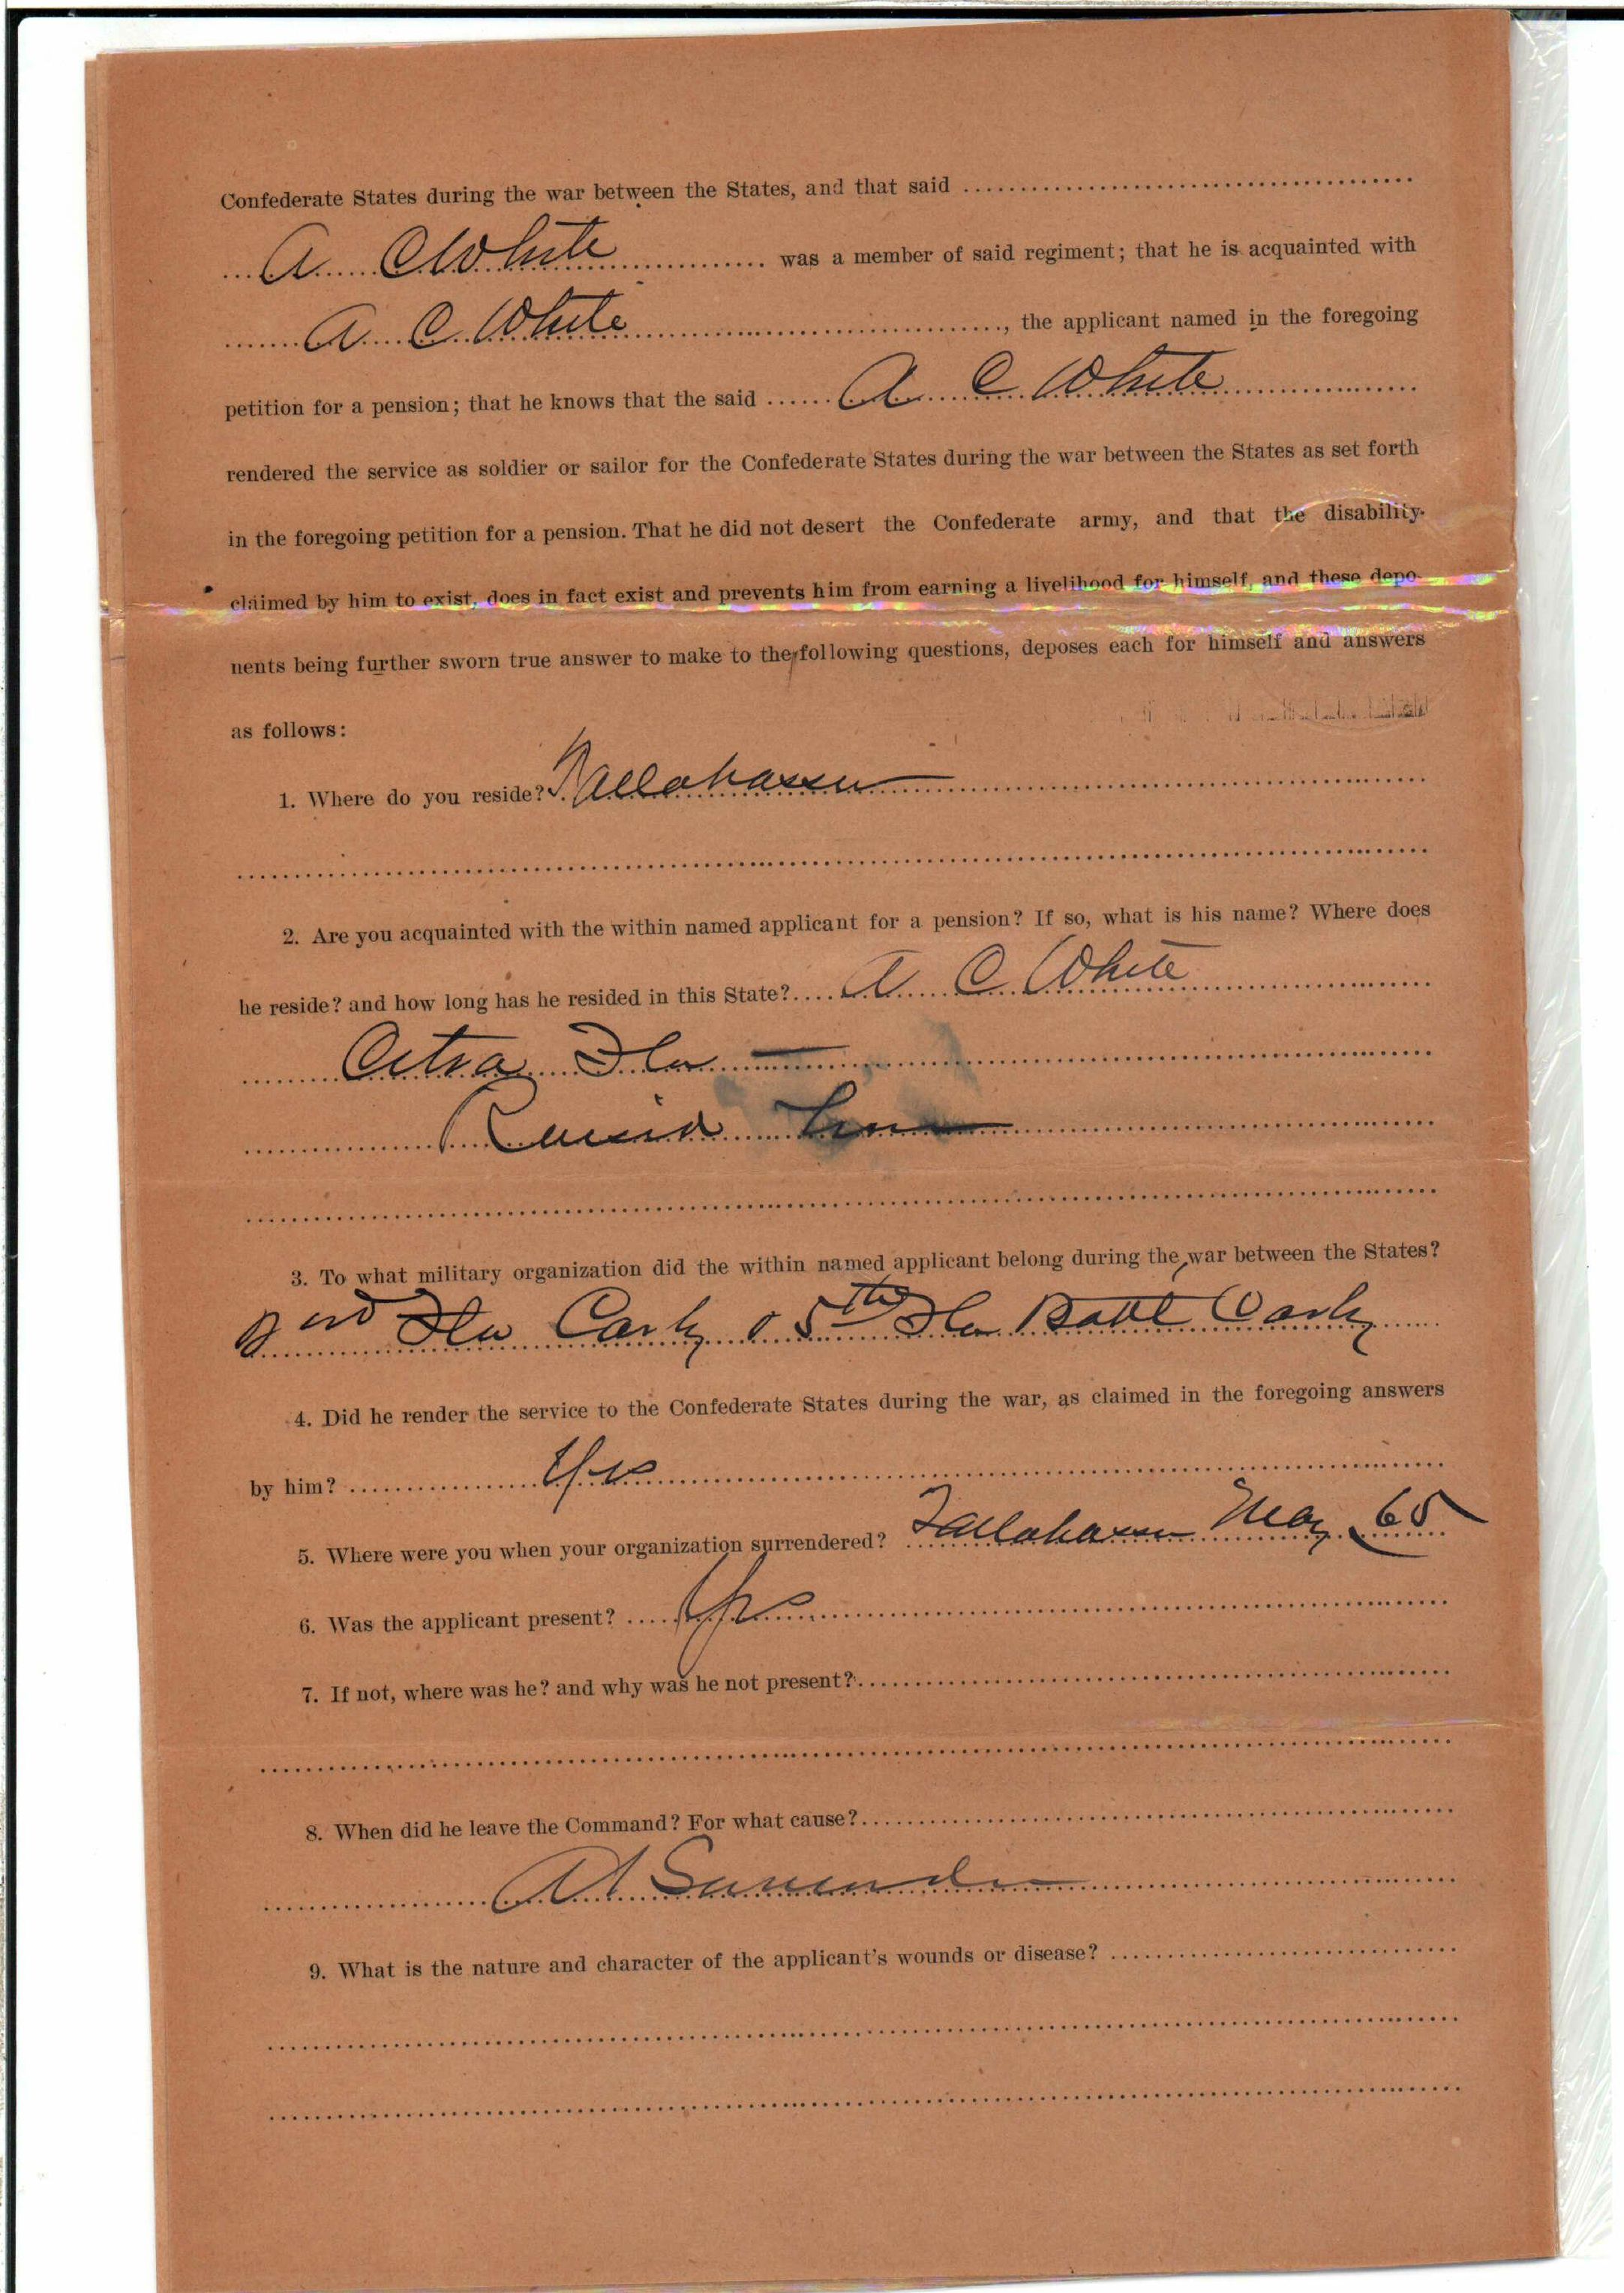 Confederate States during the war between the States, and that said
A C White was a member of said regiment; that he is acquainted with
A C White, the applicant named in the foregoing
petition for a pension; that he knows that the said A C White
rendered the service as soldier or sailor for the Confederate States during the war between the States as set forth
in the foregoing petition for a pension. That he did not desert the Confederate army, and that the disability
claimed by him to exist, does in fact exist and prevents him from earning a livelihood for himself, and these depo-
nents being further sworn true answer to make to the following questions, deposes each for himself and answers
as follows:
1. Where do you reside? Tallahassee
2. Are you acquainted with the within named applicant for a pension? If so, what is his name? Where does
he reside? and how long has he resided in this State? A C White
Citra Fla
3. To what military organization did the within named applicant belong during the war between the States?
2nd Fla Cavly 5th Fla Batl Cavly
4. Did he render the service to the Confederate States during the war, as claimed in the foregoing answers
by him? Yes
5. Where were you when your organization surrendered? Tallahassee May 65
6. Was the applicant present? Yes
7. If not, where was he? and why was he not present?
8. When did he leave the Command? For what cause?
At Surrender
9. What is the nature and character of the applicant's wounds or disease?